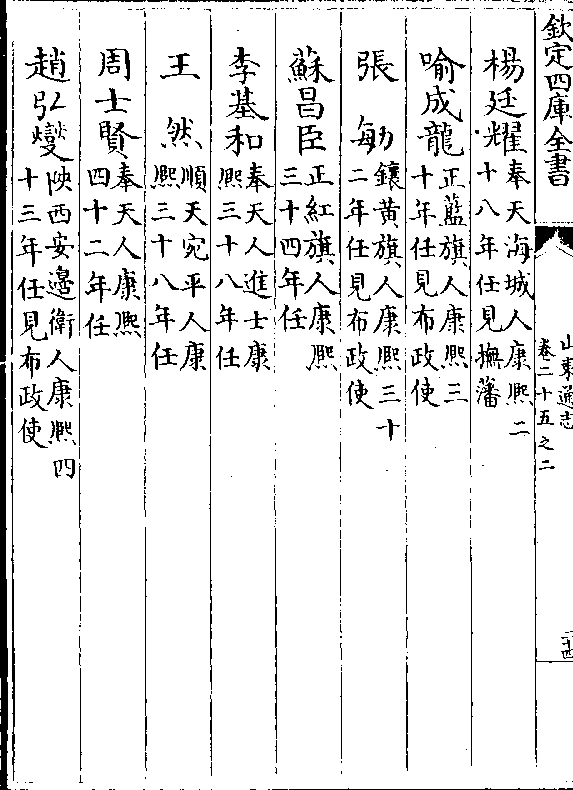 欽定四庫全書
山東通志
卷二十五之二
二十四
楊廷耀奉天海城人康熙二
十八年任見撫藩
喻成龍正藍旗人康熙三
十年任見布政使
張勄鑲黃旗人康熙三十
二年任見布政使
蘇昌臣正紅旗人康熙
三十四年任
李基和奉天人進士康
熙三十八年任
王然順天宛平人康
熙三十八年任
周士賢奉天人康熙
四十二年任
趙弘燮陝西安邉衛人康熙四
十三年任見布政使